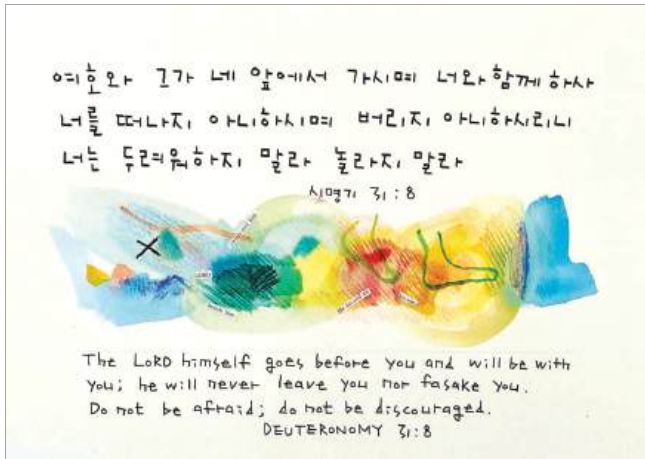 여호와 그가 네 앞에서 가시며 너와 함께 하사
너를 떠나지 아니하시며 버리지 아니하시리니
너는 두려워하지 말라 놀라지 말라
신명기 31:8
The LORD himself goes before you and will be with
you; he will never leave you nor fasake you.
Do not be afraid; do not be discouraged.
DEUTERONOMY 31:8